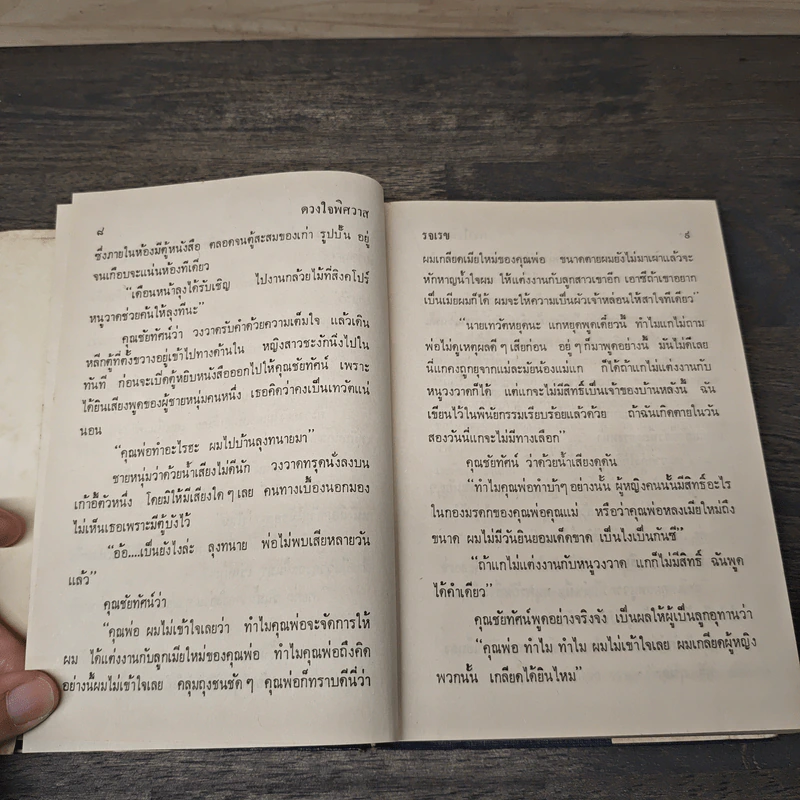 ๘
ดวงใจพิศวาส
ซึ่งภายในห้องมีตู้หนังสือ ตลอดจนตู้สะสมของเก่า รูปปั้น อยู่
จนเกือบจะแน่นห้องทีเดียว
“เดือนหน้าลุงได้รับเชิญ ไปงานกล้วยไม้ที่สิงคโปร์
หนูวาดช่วยค้นให้ลุงทีนะ”
คุณชัยทัศน์ว่า วงวาดรับคำด้วยความเต็มใจ แล้วเดิน
หลีกตู้ที่ตั้งขวางอยู่เข้าไปทางด้านใน หญิงสาวชะงักนิ่งไปใน
ทันที ก่อนจะเปิดตู้หยิบหนังสือออกไปให้คุณชัยทัศน์ เพราะ
ได้ยินเสียงพูดของผู้ชายหนุ่มคนหนึ่ง เธอคิดว่าคงเป็นเทวัคแน่
นอน
“คุณพ่อทำอะไรฮะ ผมไปบ้านลุงทนายมา”
ชายหนุ่มว่าด้วยน้ำเสียงไม่ดีนัก วงวาดทรุดนั่งลงบน
เก้าอี้ตัวหนึ่ง โดยมิให้มีเสียงใด ๆ เลย คนทางเบื้องนอกมอง
ไม่เห็นเธอเพราะมีตู้บังไว้
“อ้อ....เป็นยังไงล่ะ ลุงทนาย พ่อไม่พบเสียหลายวัน
แล้ว”
คุณชัยทัศน์ว่า
“คุณพ่อ ผมไม่เข้าใจเลยว่า ทำไมคุณพ่อจะจัดการให้
ผม ได้แต่งงานกับลูกเมียใหม่ของคุณพ่อ ทำไมคุณพ่อถึงคิด
อย่างนี้ผมไม่เข้าใจเลย คลุมถุงชนชัด ๆ คุณพ่อก็ทราบดีนี่ว่า
รจเรข
๙
ผมเกลียดเมียใหม่ของคุณพ่อ ขนาดตายผมยังไม่มาเผาแล้วจะ
หักหาญน้ำใจผม ให้แต่งงานกับลูกสาวเขาอีก เอาซีถ้าเขาอยาก
เป็นเมียผมก็ได้ ผมจะให้ความเป็นผัวเจ้าหล่อนให้สาใจทีเดียว”
“นายเทวัคหยุดนะ แกหยุดพูดเดี๋ยวนี้ ทำไมแกไม่ถาม
พ่อไม่ดูเหตุผลดี ๆ เสียก่อน อยู่ ๆ ก็มาพูดอย่างนี้ มันไม่ดีเลย
นี่แกคงถูกยุจากแม่ละมัยน้องแม่แก ก็ได้ถ้าแกไม่แต่งงานกับ
หนูวงวาดก็ได้ แต่แกจะไม่มีสิทธิ์เป็นเจ้าของบ้านหลังนี้ ฉัน
เขียนไว้ในพินัยกรรมเรียบร้อยแล้วด้วย ถ้าฉันเกิดตายในวัน
สองวันนี่แกจะไม่มีทางเลือก”
คุณชัยทัศน์ ว่าด้วยน้ำเสียงดุดัน
“ทำไมคุณพ่อทำบ้าๆ อย่างนั้น ผู้หญิงคนนั้นมีสิทธิ์อะไร
ในกองมรดกของคุณพ่อคุณแม่ หรือว่าคุณพ่อหลงเมียใหม่ถึง
ขนาด ผมไม่มีวันยินยอมเด็ดขาด เป็นไงเป็นกันซี”
“ถ้าแกไม่แต่งงานกับหนูวงวาด แกก็ไม่มีสิทธิ์ ฉันพูด
ได้คำเดียว”
คุณชัยทัศน์พูดอย่างจริงจัง เป็นผลให้ผู้เป็นลูกอุทานว่า
“คุณพ่อ ทำไม ทำไม ผมไม่เข้าใจเลย ผมเกลียดผู้หญิง
พวกนั้น เกลียดได้ยินไหม”